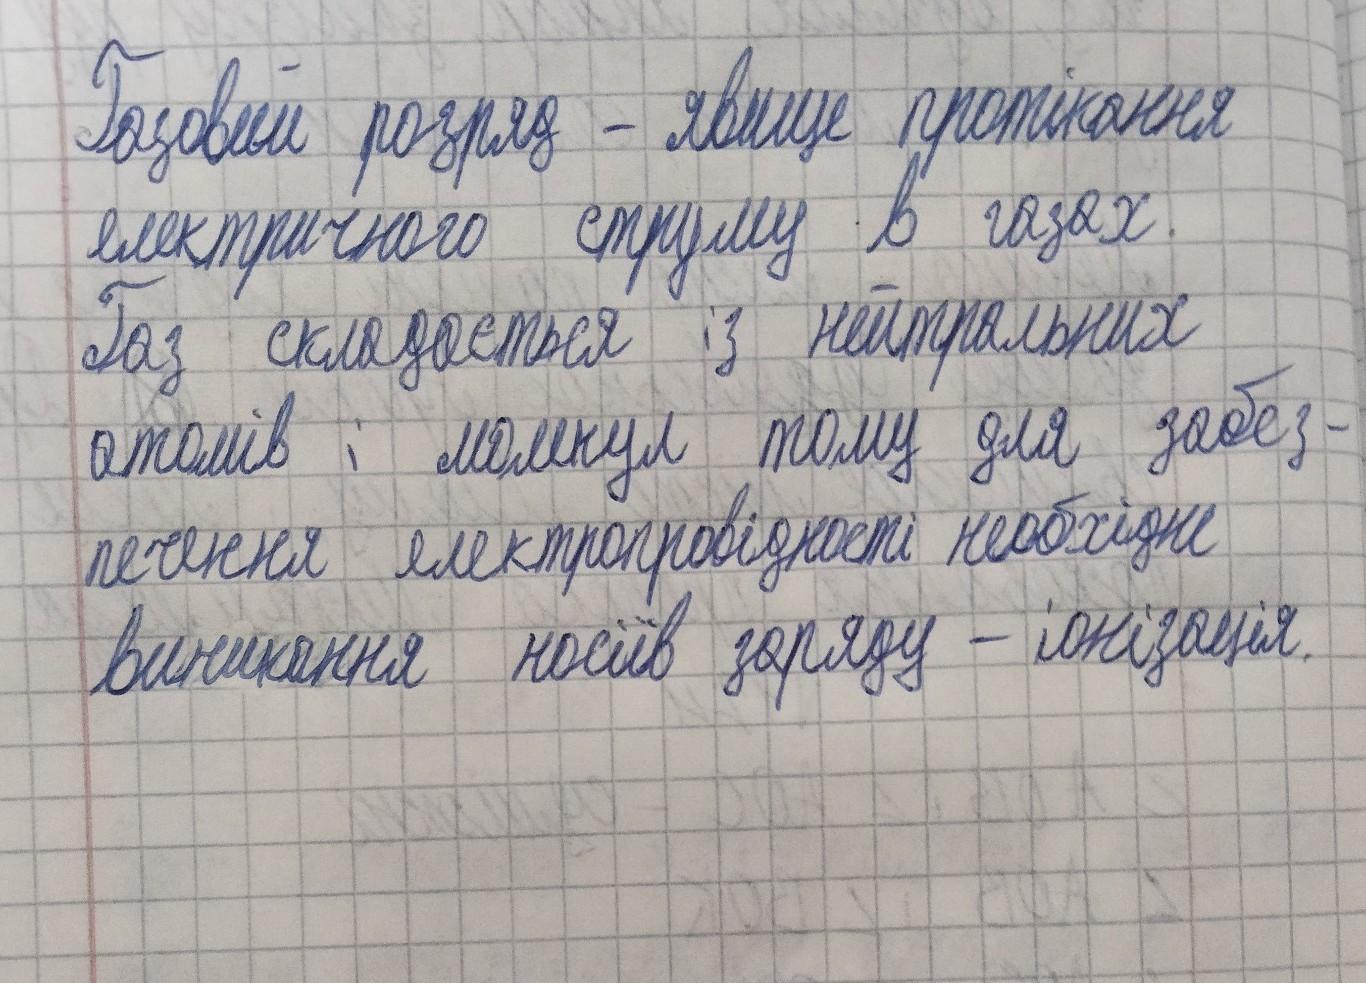 Газовий розряд – явище протікання
електричного струму в газах.
Газ складається із нейтральних
атомів і молекул тому для забез-
печення електропровідності необхідне
виникання носіїв заряду – іонізація.